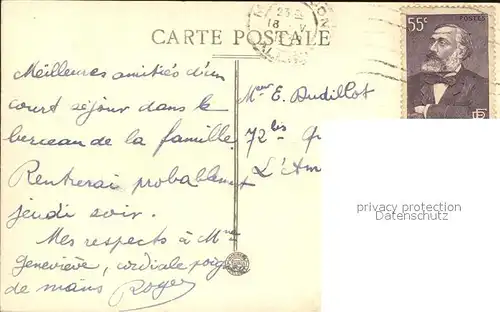 55c
POSTES
CARTE POSTALE
Meilleures amitiés d'un
court séjour dans le
berceau de la famille.
Rentrerai probablement
jeudi soir.
Mes respects à Mme
Geneviève, cordiale poig
de mains Roger
E. Dudillot
72 bis
L'Am
privacy protection
Datenschutz